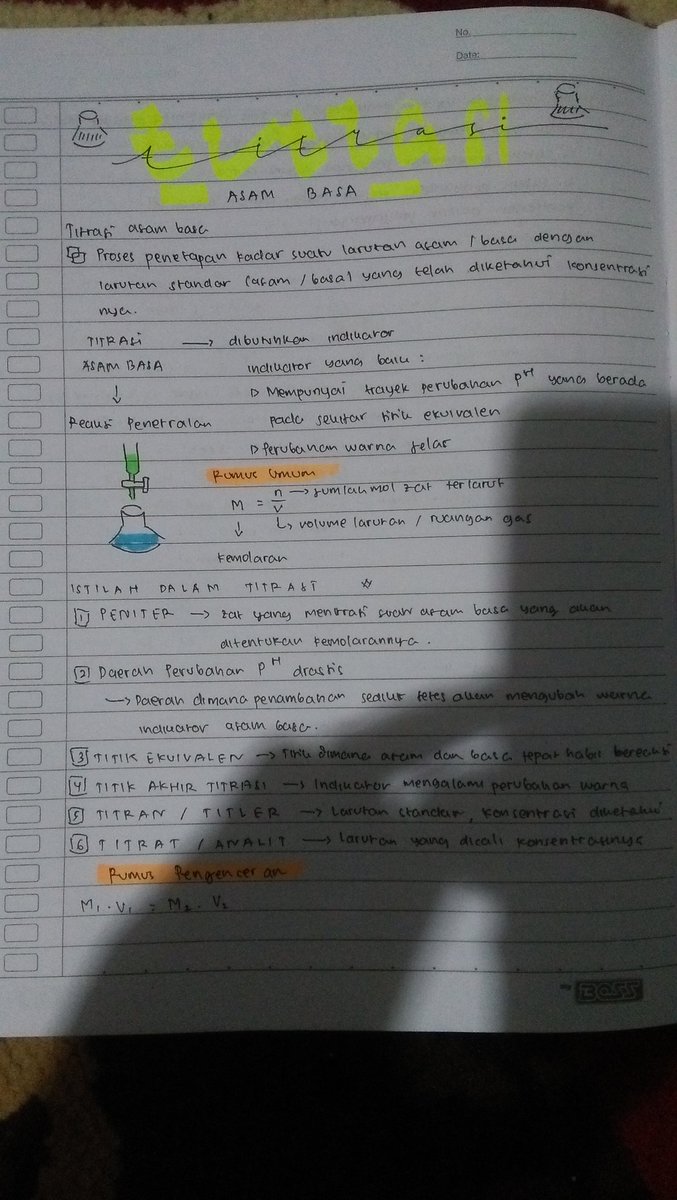 No.
Date:
titrasi
ASAM BASA
Titrasi asam basa
Proses penetapan kadar suatu larutan asam / basa dengan
larutan standar (asam / basa) yang telah diketahui konsentrasi
nya.
TITRASI → dibutuhkan indikator
ASAM BASA indikator yang baik :
↓ ▷ Mempunyai trayek perubahan pH yang berada
Reaksi Penetralan pada sekitar titik ekuivalen
▷ Perubahan warna jelas
Rumus Umum
M = n/v → jumlah mol zat terlarut
↓ ↳ volume larutan / ruangan gas
kemolaran
ISTILAH DALAM TITRASI ☆
1 PENITER → zat yang mentrasi suatu asam basa yang akan
ditentukan kemolarannya.
2 Daerah Perubahan pH drastis
→ Daerah dimana penambahan sedikit tetes akan mengubah warna
indikator asam basa.
3 TITIK EKUIVALEN → Titik dimana asam dan basa tepat habis bereaksi
4 TITIK AKHIR TITRASI → Indikator mengalami perubahan warna
5 TITRAN / TITLER → Larutan standar, konsentrasi diketahui
6 TITRAT / ANALIT → larutan yang dicali konsentrasinya
Rumus Pengenceran
M₁ . V₁ = M₂ . V₂
BOSS